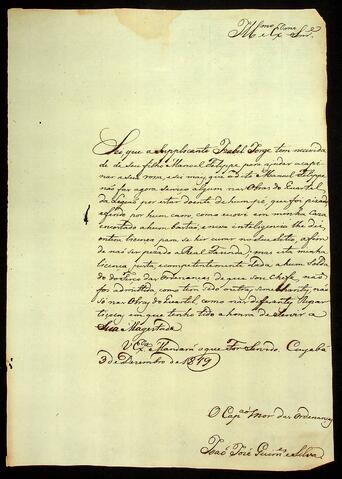 Illmo e Exmo Snr.
Sei, que a Supplicante Izabel Jorge tem necessida
de de seu filho Manoel Felippe para ajudar a capi
nar a sua rossa, e sei mais, que o dito Manoel Felippe
não faz agora serviço algum nas Obras do Quartel
da Legião por estar doente de hum pé, que foi pizado
e ferido por hum carro, como eu vi em minha Caza
encostado a hum bastão, e nessa intelligencia lhe dei,
ou licença para se hir curar no seu sitio, a fim
de não ser pezado a Real Fazenda; mas esta minha
licença junta competentemente dada a hum Solda
do do Terço das Ordenanças de que sou Chefe, não
foi admittida, como tem sido outras semelhantes, não
só nas Obras do Quartel como nas differentes Repar
tiçoens em que tenho tido a honra de servir a
Sua Magestade.
V. Exa. Mandará o que For Servido. Cuyabá
3 de Dezembro de 1819
O Capam Mor das Ordenanças
João José Guims e Silva